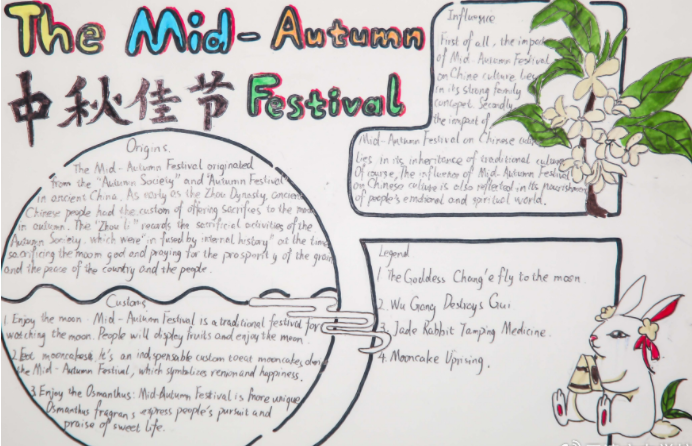 The Mid-Autumn
中秋佳节 Festival
Origins.
The Mid-Autumn Festival originated
from the "Autumn Society" and "Autumn Festival"
in ancient China. As early as the Zhou Dynasty, ancient
Chinese people had the custom of offering sacrifices to the moon
in autumn. The "Zhou Li" records the sacrificial activities of the
Autumn Society, which were "in fused by internal history" at the time,
sacrificing the moom god and praying for the prosperity of the
and the peace of the country and the people.
Customs
1. Enjoy the moon. Mid-Autumn Festival is a traditional festival for
watching the moon. People will display fruits and enjoy the moon.
2. Eat It's an indispensable custom to eat mooncakes
the Mid-Autumn Festival, which symbolizes reunion and happiness.
3. Enjoy the Osmanthus: Mid-Autumn Festival is more unique
Osmanthus fragrans express people's pursuit and
praise of sweet life.
Influence
First of all, the
of Mid-Autumn Festival
on Chine culture lies
in its strong family
concept. Secondly
the impact of
Mid-Autumn Festival on Chinese
lies in its inheritance of traditional culture
Of course, The influence of Mid-Autumn Festival
on Chinese culture is also reflected in its nourishment
of people's emotional and spiritual world.
Legend
1. The Goddess Chang'e fly to the moon
2. Wu Gang Destroys Gui
3. Jade Rabbit Tamping Medicine.
4. Mooncake Uprising.